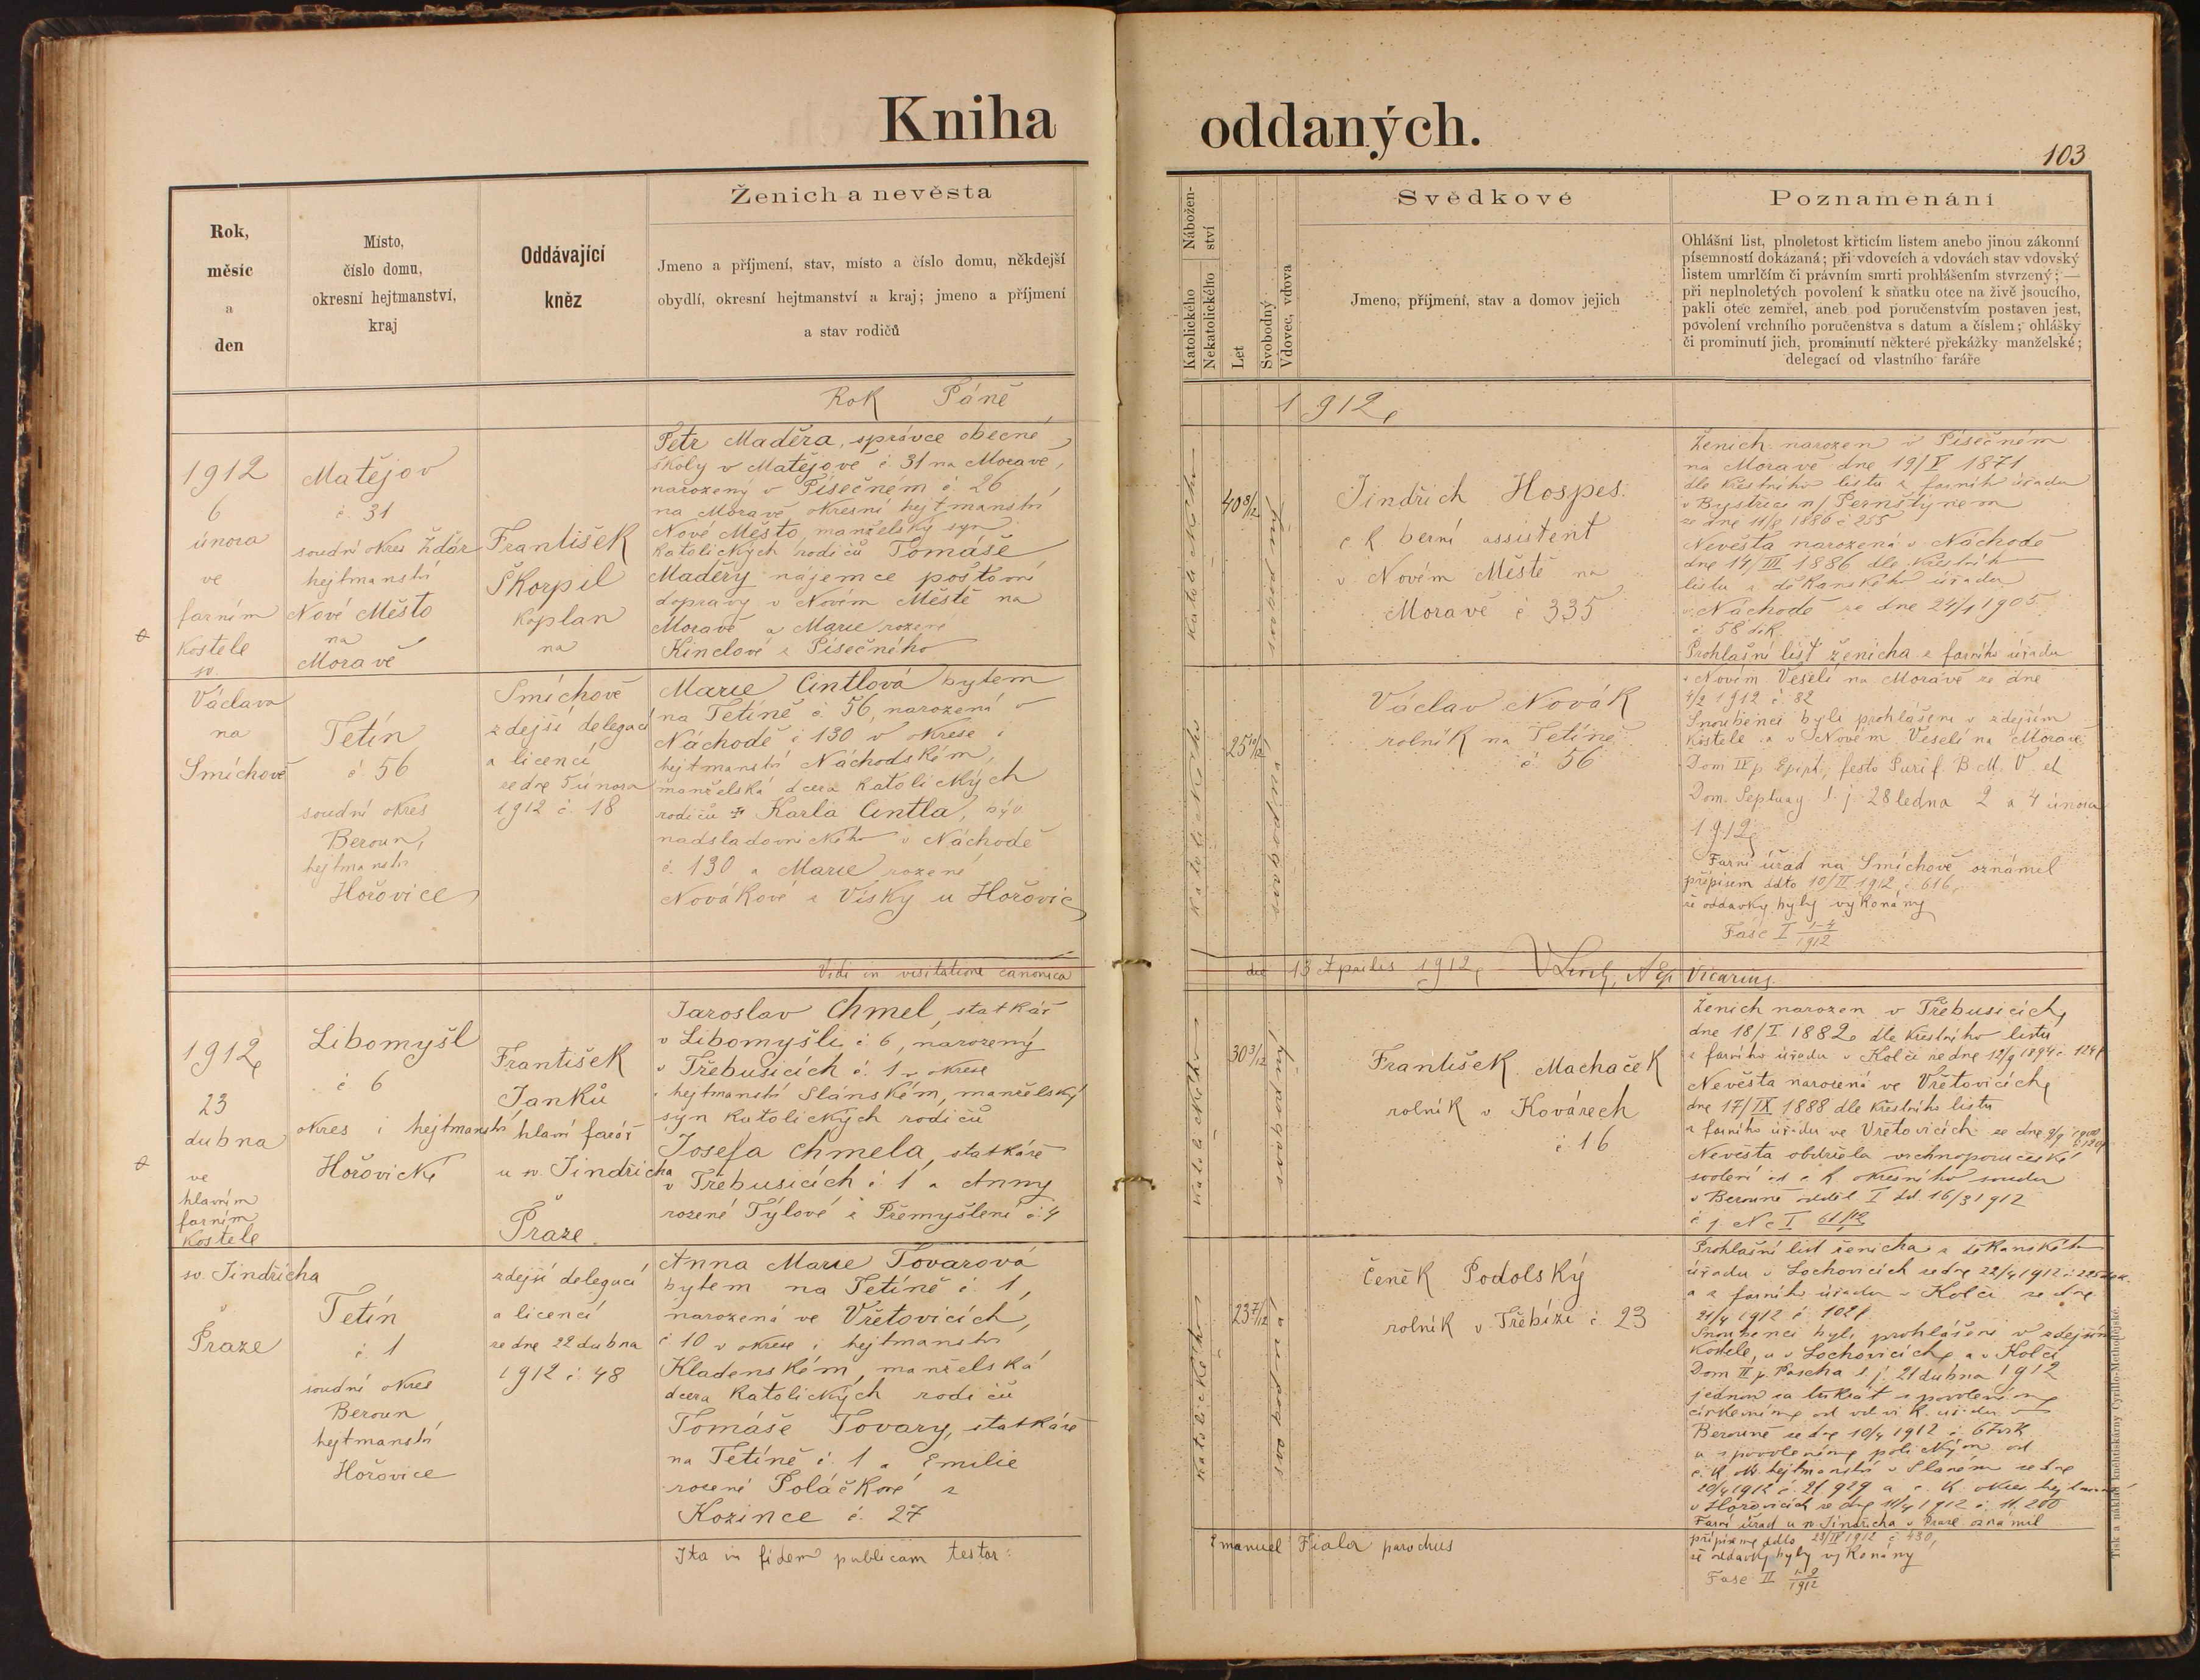 Kniha oddaných.
103
Rok,
měsíc
a
den
Místo,
číslo domu,
okresní hejtmanství,
kraj
Oddávající
kněz
Ženich a nevěsta
Jmeno a příjmení, stav, místo a číslo domu, někdejší
obydlí, okresní hejtmanství a kraj; jmeno a příjmení
a stav rodičů
Nábožen-
ství
Katolického
Nekatolického
Let
Svobodný
Vdovec, vdova
Svědkové
Jmeno, příjmení, stav a domov jejich
Poznamenání
Ohlášní list, plnoletost křticím listem anebo jinou zákonní
písemností dokázaná; při vdovcích a vdovách stav vdovský
listem umrlčím či právním smrti prohlášením stvrzený; —
při neplnoletých povolení k sňatku otce na živě jsoucího,
pakli otec zemřel, aneb pod poručenstvím postaven jest,
povolení vrchního poručenstva s datum a číslem; ohlášky
či prominutí jich, prominutí některé překážky manželské;
delegací od vlastního faráře
Rok Páně
1912
1912
6
února
ve
farním
kostele
sv.
Václava
na
Smíchově
Matějov
č. 31
soudní okres Žďár
hejtmanství
Nové Město
na
Moravě
František
Škorpil
kaplan
na
Smíchově
zdejší delegací
a licencí
ze dne 5 února
1912 č. 18
Petr Maděra, správce obecné
školy v Matějově č. 31 na Moravě,
narozený v Písečném č. 26
na Moravě okresní hejtmanství
Nové Město, manželský syn
katolických rodičů Tomáše
Maděry nájemce poštovní
dopravy v Novém Městě na
Moravě a Marie rozené
Kinclové z Písečného
katolického
40 8/12
svobodný
Jindřich Hospes
c k berní assistent
v Novém Městě na
Moravě č 335
Ženich narozen v Písečném
na Moravě dne 19/V 1871
dle křestního listu z farního úřadu
v Bystřici n/ Pernštýnem
ze dne 11/8 1886 č 255
Nevěsta narozená v Náchodě
dne 14/III 1886 dle křestního
listu z děkanského úřadu
v Náchodě ze dne 24/1 1905
č. 58 děk.
Prohlašní list ženicha z farního úřadu
v Novém Veselí na Moravě ze dne
4/2 1912 č. 82
Snoubenci byli prohlášeni v zdejším
kostele a v Novém Veselí na Moravě
Dom IV p Epiph, festo Purif. B. M. V. et
Dom. Septuag t. j. 28 ledna 2 a 4 února
1912
Farní úřad na Smíchově oznámil
přípisem ddto 10/II 1912 č. 616,
že oddavky byly vykonány
Fasc I 1-4/1912
Tetín
č. 56
soudní okres
Beroun,
hejtmanství
Hořovice
Marie Cintlová bytem
na Tetíně č. 56, narozená v
Náchodě č 130 v okrese i
hejtmanství Náchodském,
manželská dcera katolických
rodičů Karla Cintla, býv
nadsladovnického v Náchodě
č. 130 a Marie rozené
Novákové z Vísky u Hořovic
katolického
25 10/12
svobodná
Václav Novák
rolník na Tetíně
č. 56
Vidi in visitatione canonica
die 13 Aprilis 1912 Vicarius
1912
23
dubna
ve
hlavním
farním
kostele
sv. Jindřicha
v
Praze
Libomyšl
č 6
okres i hejtmanství
Hořovické
František
Janků
hlavní farář
u sv. Jindřicha
v
Praze
zdejší delegací
a licencí
ze dne 22 dubna
1912 č. 48
Jaroslav Chmel, statkář
v Libomyšli č 6, narozený
v Třebusicích č. 1 v okrese
i hejtmanství Slánském, manželský
syn katolických rodičů
Josefa Chmela, statkáře
v Třebusicích č 1 a Anny
rozené Týlové z Přemyšlení č. 4
katolického
30 3/12
svobodný
František Machaček
rolník v Kovárech
č 16
Ženich narozen v Třebusicích
dne 18/I 1882 dle křestního listu
z farního úřadu v Kolči ze dne 12/9 1894 č 124
Nevěsta narozená ve Vřetovicích
dne 17/IX 1888 dle křestního listu
z farního úřadu ve Vřetovicích ze dne
Nevěsta obdržela vrchnoporučenské
svolení od c k okresního soudu
v Berouně odděl I dd 16/3 1912
č j. Nc I
Prohlašní list ženicha z děkanského
úřadu v Lochovicích ze dne 22/4 1912 č 225 děk.
a z farního úřadu v Kolči ze dne
21/4 1912 č 102
Snoubenci byli prohlášeni v zdejším
kostele, a v Lochovicích a v Kolči
Dom II p. Pascha t. j. 21 dubna 1912
jednou za třikrát s povolením
církevním od vik. úřadu v
Berouně ze dne 10/4 1912 č.
a s povolením politickým od
c. k. ok. hejtmanství v Slaném ze dne
20/4 1912 č. 21.929 a c. k. okres. hejtmanství
v Hořovicích ze dne 11/4 1912 č. 11.200
Farní úřad u sv. Jindřicha v Praze oznámil
přípisem ddto 23/IV 1912 č. 430,
že oddavky byly vykonány
Fasc II 1-9/1912
Tetín
č 1
soudní okres
Beroun
hejtmanství
Hořovice
Anna Marie Tovarová
bytem na Tetíně č. 1,
narozená ve Vřetovicích,
č 10 v okrese i hejtmanství
Kladenském, manželská
dcera katolických rodičů
Tomáše Tovary, statkáře
na Tetíně č. 1 a Emilie
rozené Poláčkové z
Kozince č. 27
katolického
23 7/12
svobodná
Čeněk Podolský
rolník v Třebízi č 23
Ita in fidem publicam testor:
Emanuel Fiala parochus
Tisk a náklad knihtiskárny Cyrillo-Methodějské.